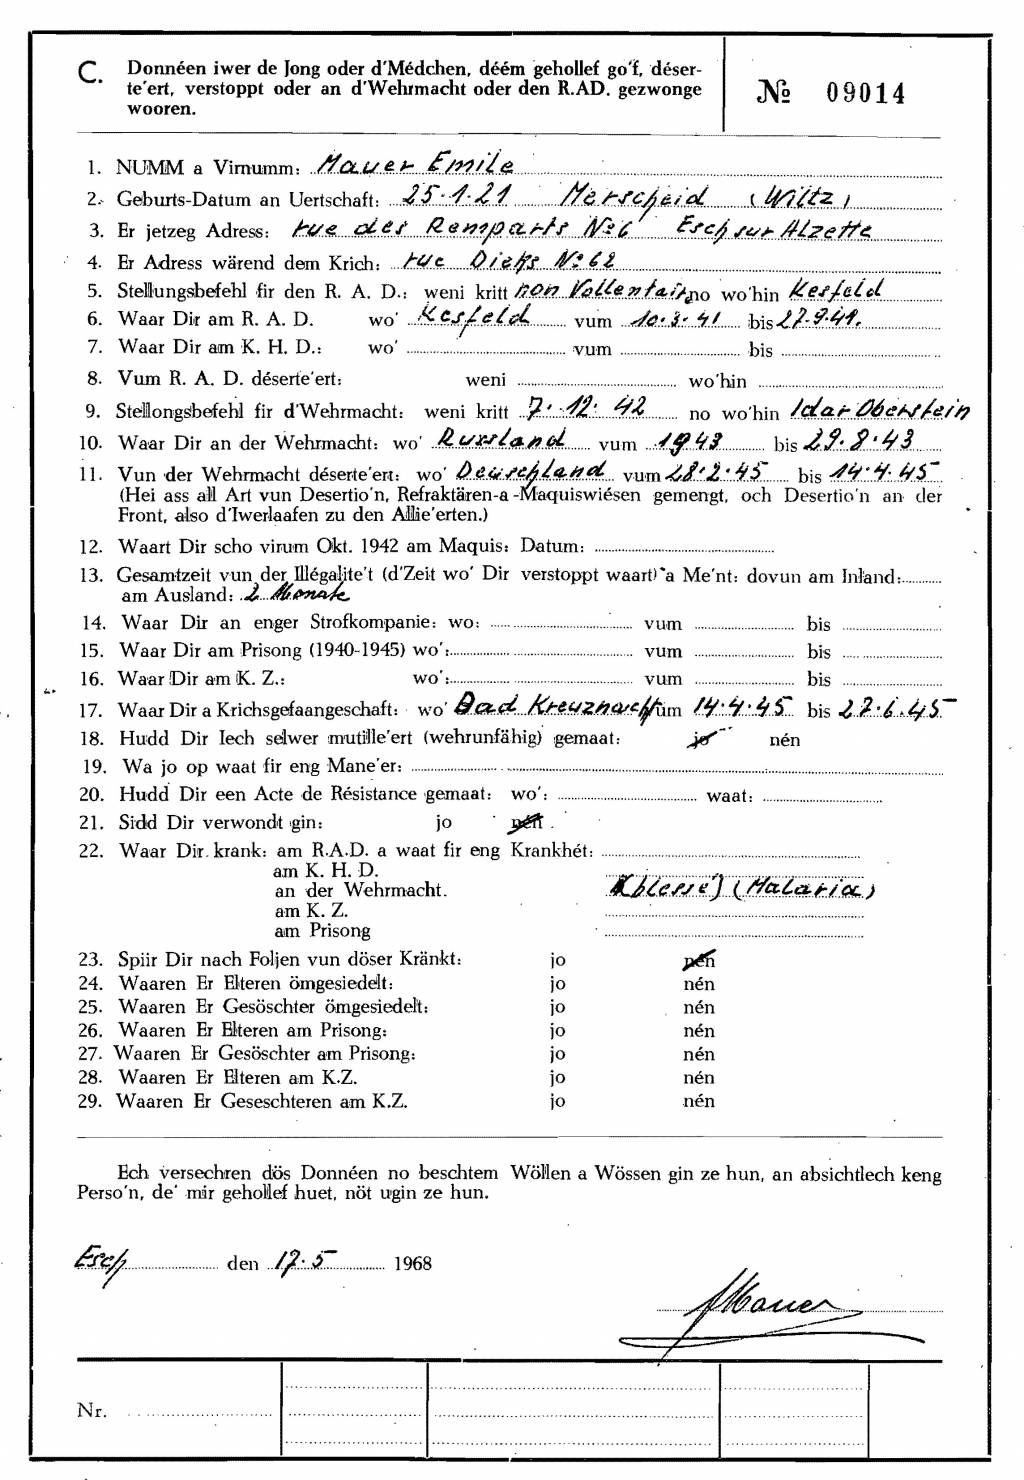 C. Donnéen iwer de Jong oder d'Médchen, déém gehollef go'f, déser-
te'ert, verstoppt oder an d'Wehrmacht oder den R.AD. gezwonge
wooren.
№ 09014
1. NUMM a Virnumm: Mauer Emile
2. Geburts-Datum an Uertschaft: 25.1.21 Merscheid (Wiltz)
3. Er jetzeg Adress: rue des Remparts №6 Esch sur Alzette
4. Er Adress wärend dem Krich: rue Dicks №62
5. Stellungsbefehl fir den R. A. D.: weni kritt non Vollentair no wo'hin Kesfeld
6. Waar Dir am R. A. D. wo' Kesfeld vum 10.3.41 bis 27.9.41.
7. Waar Dir am K. H. D.: wo' vum bis
8. Vum R. A. D. déserte'ert: weni wo'hin
9. Stellongsbefehl fir d'Wehrmacht: weni kritt 7.12.42 no wo'hin Idar Oberstein
10. Waar Dir an der Wehrmacht: wo' Russland vum 1943 bis 29.8.43
11. Vun der Wehrmacht déserte'ert: wo' Deuschland vum 28.2.45 bis 14.4.45
(Hei ass all Art vun Desertio'n, Refraktären-a-Maquiswiésen gemengt, och Desertio'n an der
Front, also d'Iwerlaafen zu den Allie'erten.)
12. Waart Dir scho virum Okt. 1942 am Maquis: Datum:
13. Gesamtzeit vun der Illégalite't (d'Zeit wo' Dir verstoppt waart) a Me'nt: dovun am Inland:
am Ausland: 2 Monate
14. Waar Dir an enger Strofkompanie: wo: vum bis
15. Waar Dir am Prisong (1940-1945) wo': vum bis
16. Waar Dir am K. Z.: wo': vum bis
17. Waar Dir a Krichsgefaangeschaft: wo' Bad Kreuznach vum 14.4.45 bis 27.6.45
18. Hudd Dir Iech selwer mutille'ert (wehrunfähig) gemaat: jo nén
19. Wa jo op waat fir eng Mane'er:
20. Hudd Dir een Acte de Résistance gemaat: wo': waat:
21. Sidd Dir verwondt gin: jo nén
22. Waar Dir krank: am R.A.D. a waat fir eng Krankhét:
am K. H. D.
an der Wehrmacht. (blessé) (Malaria)
am K. Z.
am Prisong
23. Spiir Dir nach Foljen vun döser Kränkt: jo nén
24. Waaren Er Elteren ömgesiedelt: jo nén
25. Waaren Er Gesöschter ömgesiedelt: jo nén
26. Waaren Er Elteren am Prisong: jo nén
27. Waaren Er Gesöschter am Prisong: jo nén
28. Waaren Er Elteren am K.Z. jo nén
29. Waaren Er Geseschteren am K.Z. jo nén
Ech versechren dös Donnéen no beschtem Wöllen a Wössen gin ze hun, an absichtlech keng
Perso'n, de' mir gehollef huet, nöt ugin ze hun.
Esch den 17.5 1968
Mauer
Nr.